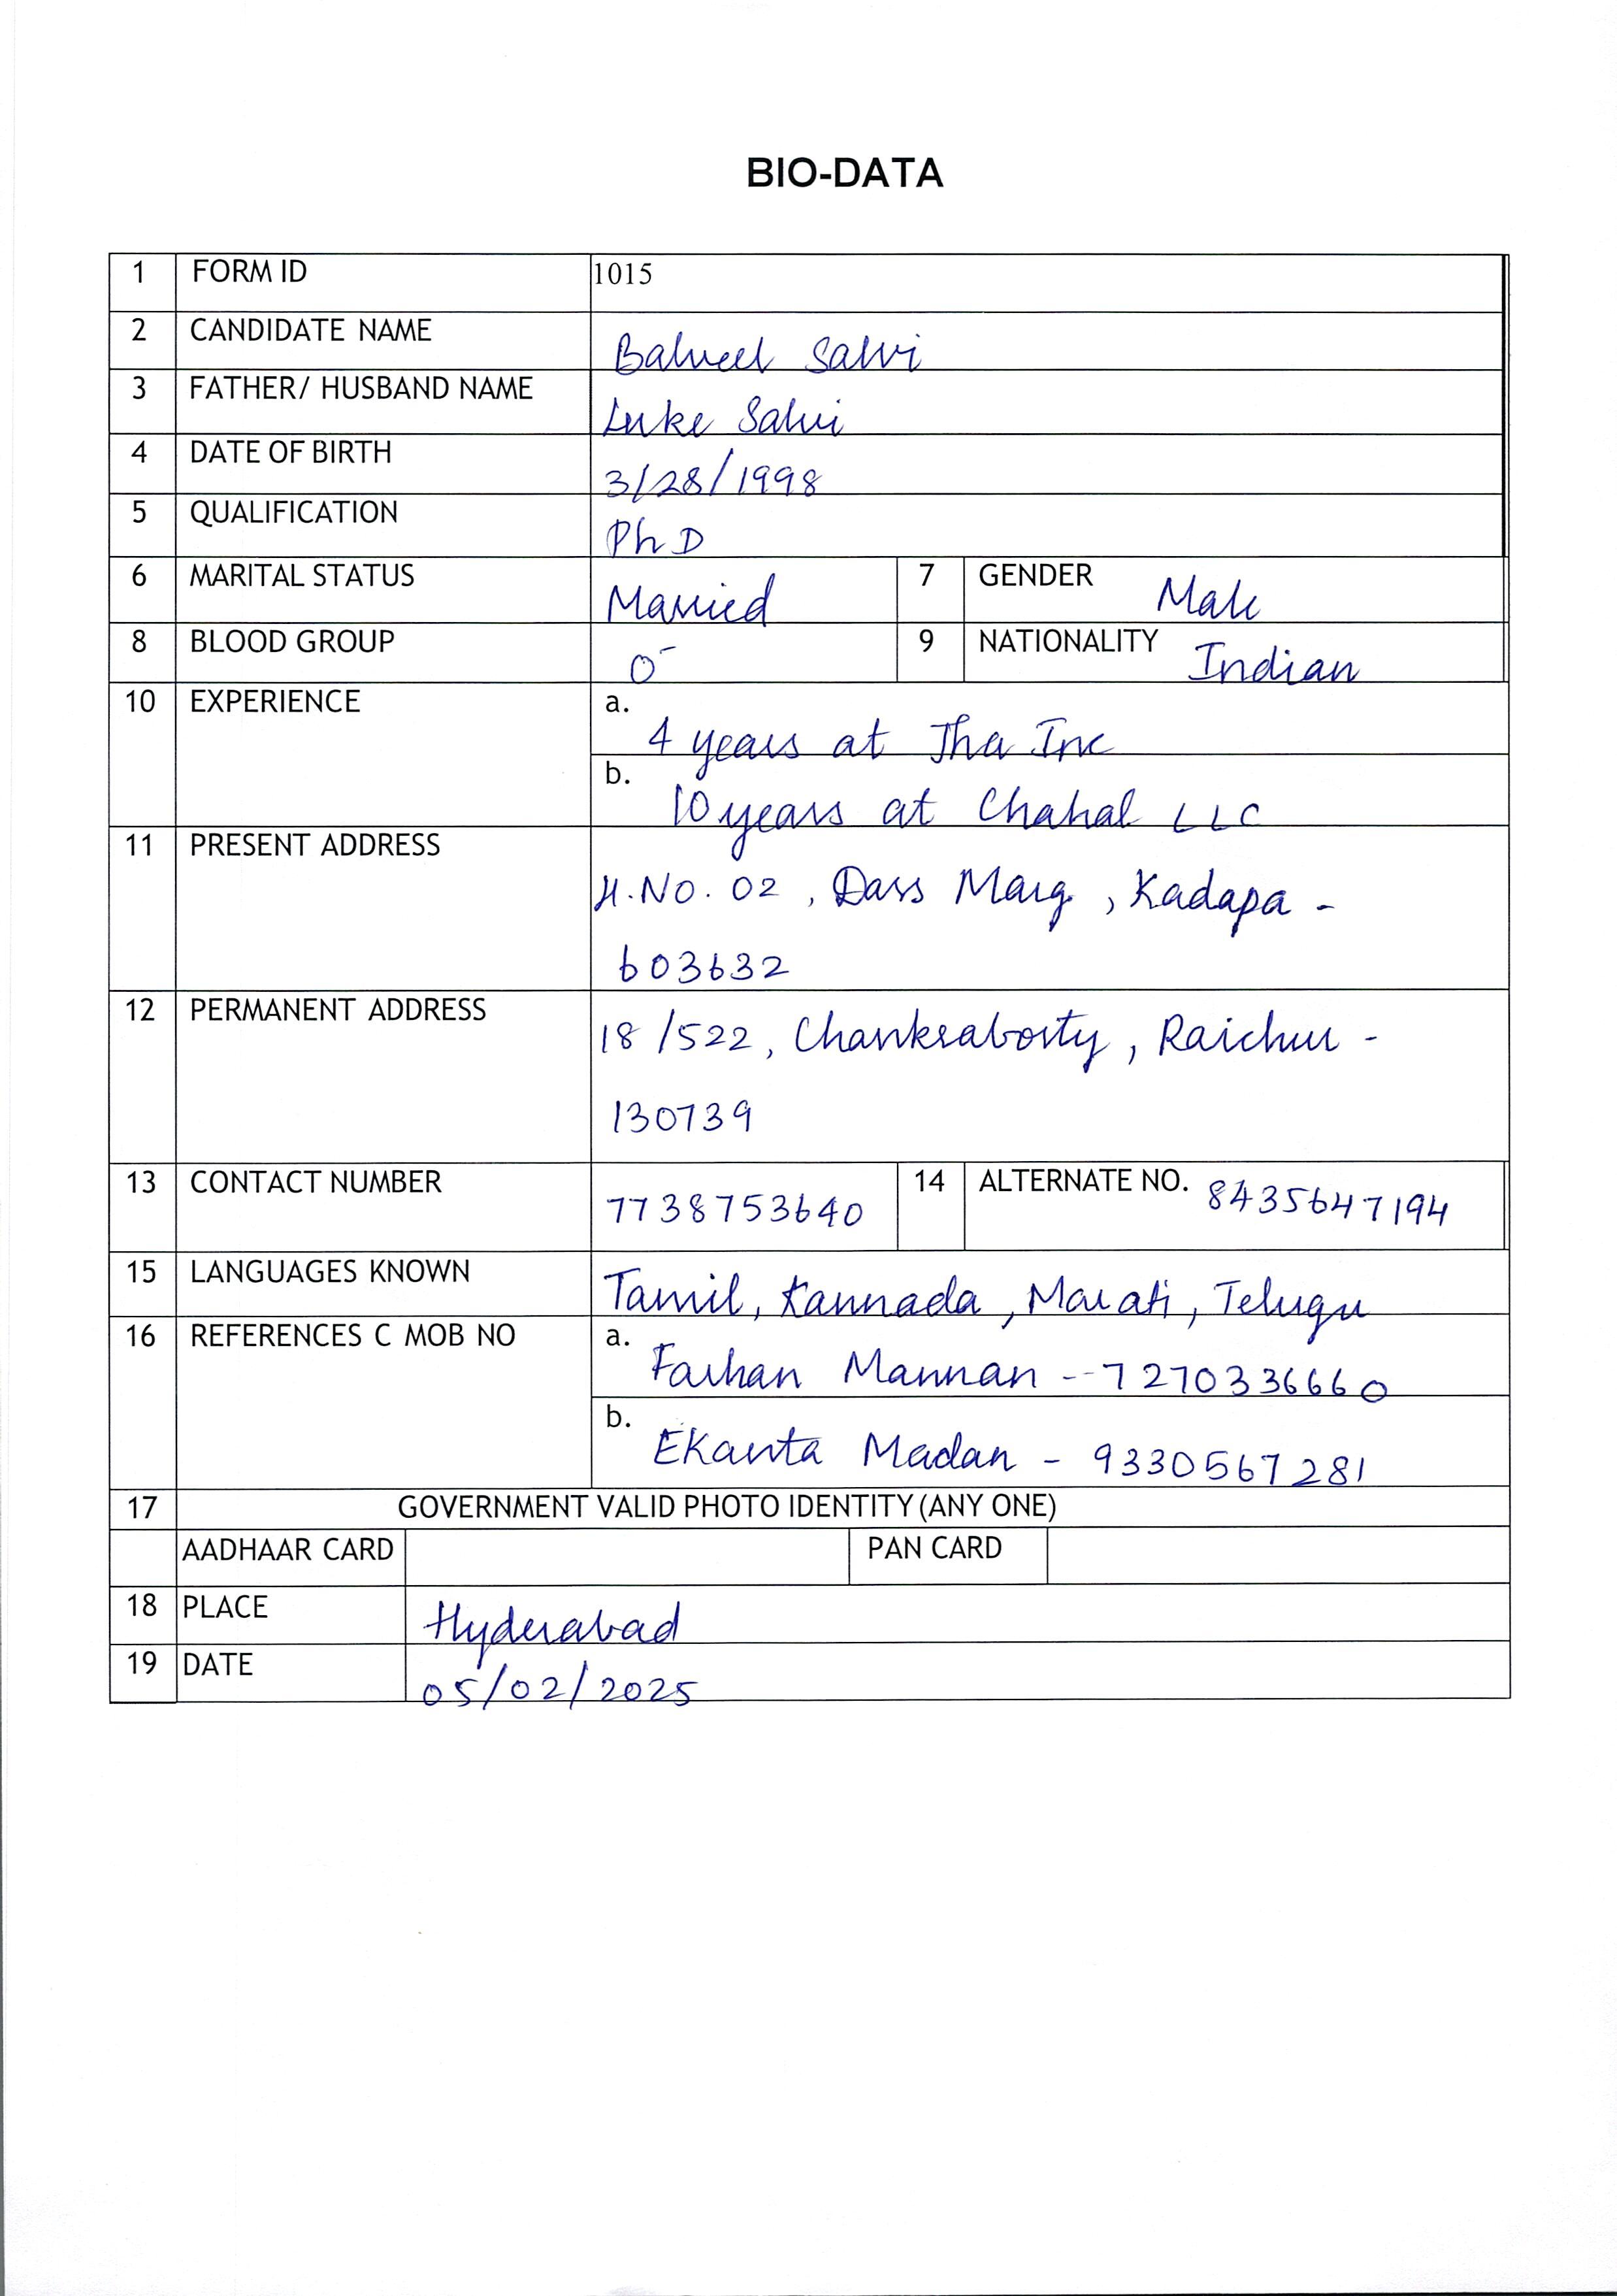 BIO-DATA
1 FORM ID 1015
2 CANDIDATE NAME Balveel Salvi
3 FATHER/ HUSBAND NAME Luke Salvi
4 DATE OF BIRTH 3/28/1998
5 QUALIFICATION PhD
6 MARITAL STATUS Married 7 GENDER Male
8 BLOOD GROUP O⁻ 9 NATIONALITY Indian
10 EXPERIENCE a. 4 years at Jha Inc
b. 10 years at Chahal LLC
11 PRESENT ADDRESS H.NO. 02, Dass Marg, Kadapa -
603632
12 PERMANENT ADDRESS 18/522, Chanksaborty, Raichur -
130739
13 CONTACT NUMBER 7738753640 14 ALTERNATE NO. 8435647194
15 LANGUAGES KNOWN Tamil, Kannada, Marati, Telugu
16 REFERENCES C MOB NO a. Farhan Mannan -- 7270336660
b. Ekanta Madan - 9330567281
17 GOVERNMENT VALID PHOTO IDENTITY (ANY ONE)
AADHAAR CARD PAN CARD
18 PLACE Hyderabad
19 DATE 05/02/2025